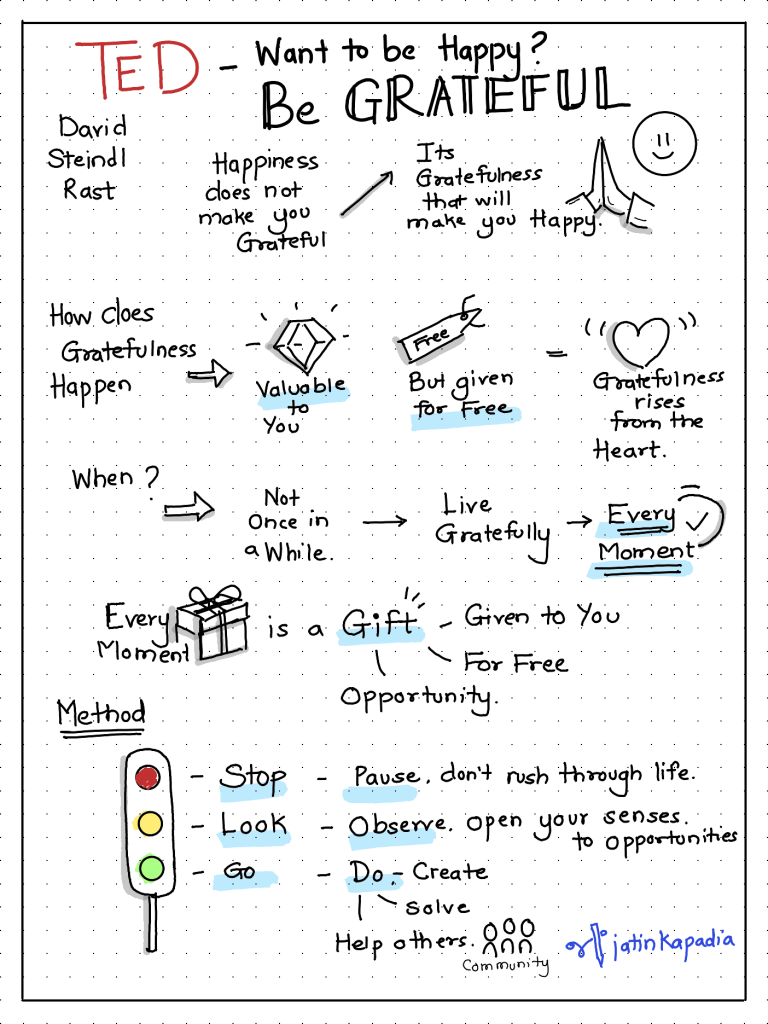 TED - Want to be Happy?
Be GRATEFUL
David
Steindl
Rast
Happiness
does not
make you
Grateful
Its
Gratefulness
that will
make you Happy.
How does
Gratefulness
Happen
Valuable
to
You
Free
But given
for Free
=
Gratefulness
rises
from the
Heart.
When?
Not
Once in
a While.
Live
Gratefully
Every
Moment
Every
Moment
is a Gift - Given to You
For Free
Opportunity.
Method
- Stop - Pause. don't rush through life.
- Look - Observe. open your senses.
to opportunities
- Go - Do - Create
solve
Help others.
Community
jatinkapadia